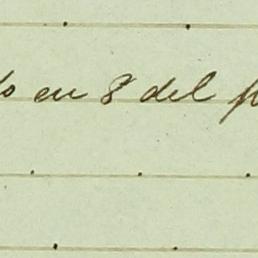 en 8 del